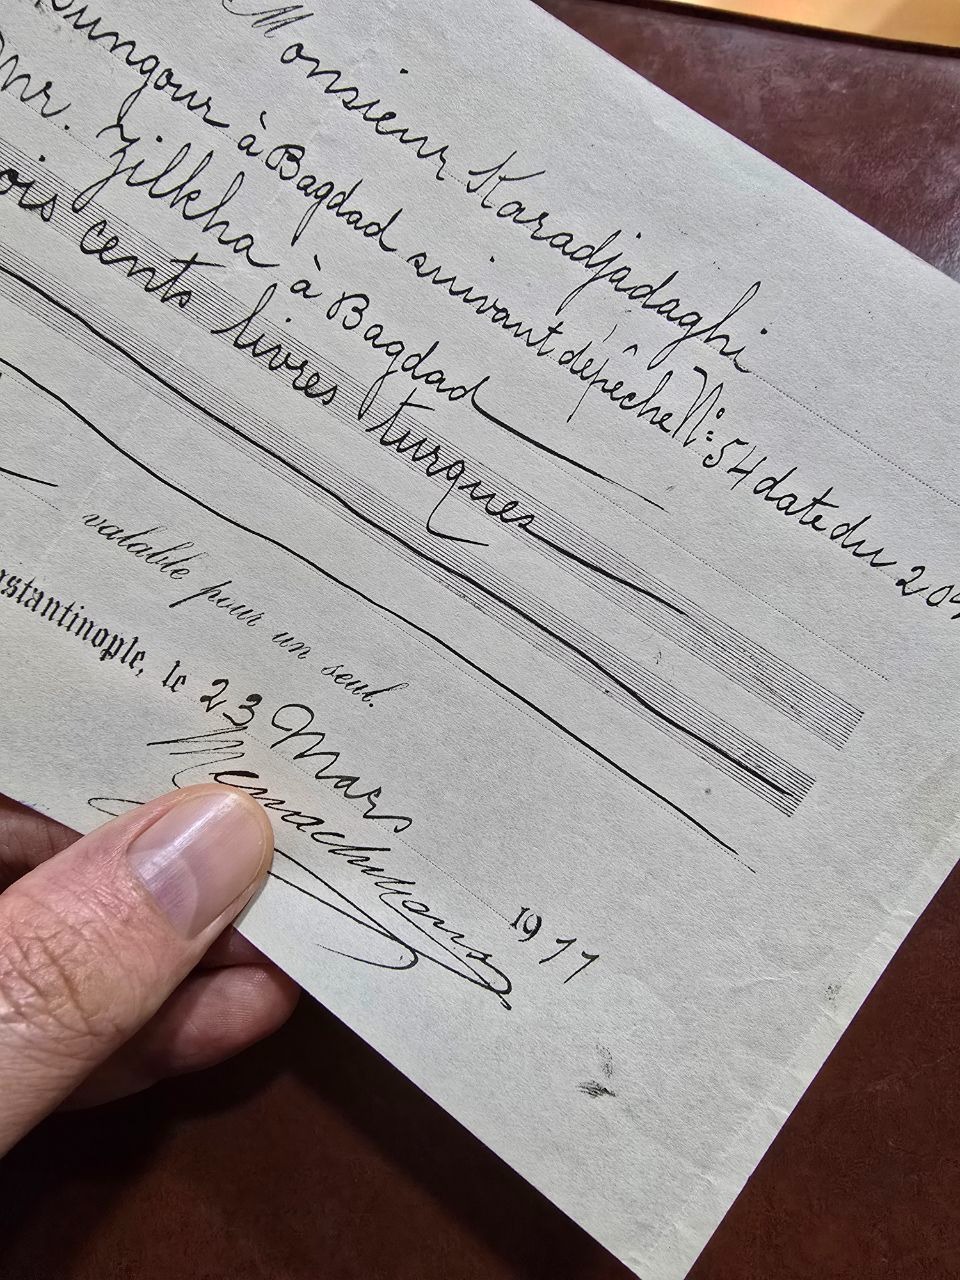 Monsieur Karadjadaghi
à Bagdad suivant dépêche N°: 54 date du 20
Zilkha à Bagdad
cents livres turques
valable pour un seul.
Constantinople, le 23 Mars 1911